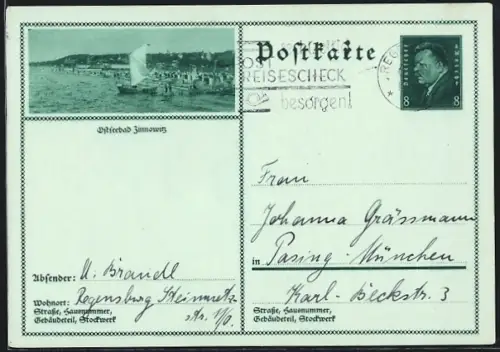 Postkarte
POST
REISESCHECK
besorgen!
REG
DEUTSCHES REICH
8 8
Ostseebad Zinnowitz
Frau
Johanna Grässmann
in Pasing-München
Karl-Beckstr. 3
Straße, Hausnummer,
Gebäudeteil, Stockwerk
Absender: A. Brandl
Wohnort: Regensburg Steinmetz
Straße, Hausnummer,
Gebäudeteil, Stockwerk
str. 1/0.